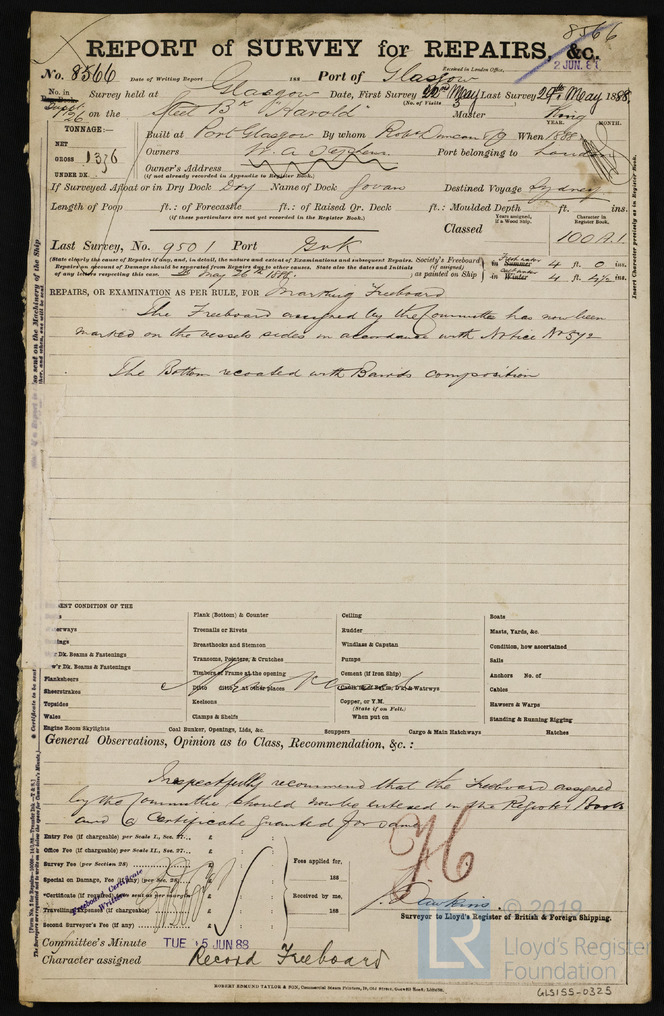 8566
REPORT of SURVEY for REPAIRS, &c.
No. 8566 Date of Writing Report 188 Port of Glasgow Received in London Office, 2 JUN. 88
No. in Survey held at Glasgow Date, First Survey 22nd May Last Survey 29th May 1888
(No. of Visits 3)
on the Steel Bk "Harold" Master King
TONNAGE:— YEAR. MONTH.
Built at Port Glasgow By whom Robt Duncan & Co When 1888
NET
GROSS 1376
UNDER DK.
Owners W. A. Port belonging to London
Owner's Address
(if not already recorded in Appendix to Register Book.)
If Surveyed Afloat or in Dry Dock Dry Name of Dock Govan Destined Voyage Sydney
Length of Poop ft.: of Forecastle ft.: of Raised Qr. Deck ft.: Moulded Depth ft. ins.
(if these particulars are not yet recorded in the Register Book.)
Years assigned, if a Wood Ship. Character in Register Book.
Classed 100 A.1.
Last Survey, No. 9501 Port Grk
(State clearly the cause of Repairs if any, and, in detail, the nature and extent of Examinations and subsequent Repairs.
Repairs on account of Damage should be separated from Repairs due to other causes. State also the dates and Initials
of any letters respecting this case. May 26th 1888.
Society's Freeboard (if assigned) as painted on Ship
Fresh water in Summer 4 ft. 0 ins.
in Winter 4 ft. 4½ ins.
REPAIRS, OR EXAMINATION AS PER RULE, FOR Marking Freeboard
The Freeboard assigned by the Committee has now been
marked on the vessels sides in accordance with Notice No 572
The Bottom recoated with composition
Insert Character precisely as in Register Book.
PRESENT CONDITION OF THE
Dk. Beams & Fastenings
w'r Dk. Beams & Fastenings
Planksheers
Sheerstrakes
Topsides
Wales
Engine Room Skylights
Plank (Bottom) & Counter
Treenails or Rivets
Breasthooks and Stemson
Transoms, Pointers, & Crutches
Timbers or Frame at the opening
Ditto ditto at other places
Keelsons
Clamps & Shelfs
Coal Bunker, Openings, Lids, &c.
Ceiling
Rudder
Windlass & Capstan
Pumps
Cement (if Iron Ship)
Copper, or Y.M.
(State if on Felt.)
When put on
Scuppers
Cargo & Main Hatchways
Boats
Masts, Yards, &c.
Condition, how ascertained
Sails
Anchors No. of
Cables
Hawsers & Warps
Standing & Running Rigging
Hatches
General Observations, Opinion as to Class, Recommendation, &c.:
I respectfully recommend that the Freeboard assigned
by the Committee should now be entered in the Register Book
and a Certificate granted for same
Entry Fee (if chargeable) per Scale I., Sec. 27... £ : :
Office Fee (if chargeable) per Scale II., Sec. 27... £ : :
Survey Fee (per Section 28) £ : :
Special on Damage, Fee (if any) (per Sec. 28) £ : :
*Certificate (if required) to be sent as per margin £ : :
Travelling Expenses (if chargeable) £ : :
Second Surveyor's Fee (if any) £ : :
Freeboard Certificate Written
Fees applied for,
188
Received by me,
188
H
J. Dawkins
Surveyor to Lloyd's Register of British & Foreign Shipping.
Committee's Minute TUE 5 JUN 88
Character assigned Record Freeboard
ROBERT EDMUND TAYLOR & SON, Commercial Steam Printers, 19, Old Street, Goswell Road, London.
© 2019
LR
Lloyd's Register
Foundation
GLS155-0325